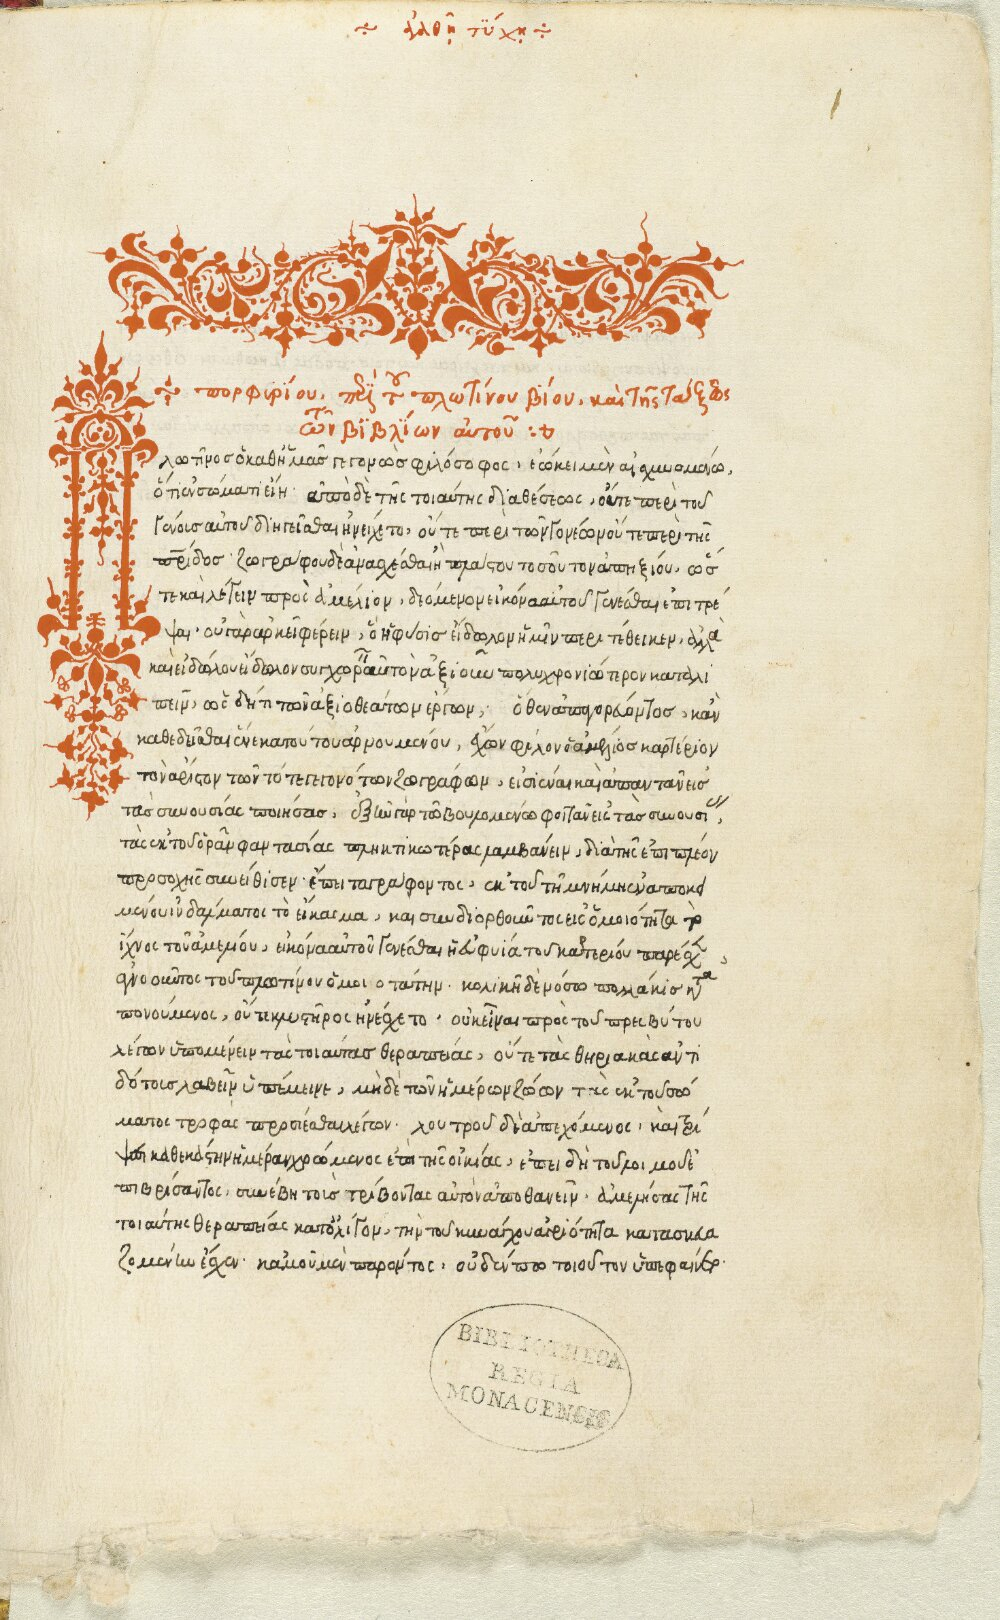 ἀγαθῆ τύχη
1
πορφυρίου, περὶ τοῦ πλωτίνου βίου, καὶ τῆς τάξεως
τῶν βιβλίων αὐτοῦ :
Πλωτῖνος ὁ καθ' ἡμᾶς γεγονὼς φιλόσοφος, ἐώκει μὲν αἰσχυνομένω,
ὅτι ἐν σώματι εἴη· ἀπὸ δὲ τῆς τοιαύτης διαθέσεως, οὔτε περὶ τοῦ
γένους αὐτοῦ διηγεῖσθαι ἠνείχετο, οὔτε περὶ τῶν γονέων οὔτε περὶ τῆς
πατρίδος· ζωγράφου δὲ ἀνασχέσθαι ἢ πλάστου τοσοῦτον ἀπηξίου, ὥσ
τε καὶ λέγειν πρὸς ἀμέλιον, δεόμενον εἰκόνα αὐτοῦ γενέσθαι ἐπιτρέ
ψαι· οὐ γὰρ ἀρκεῖ φέρειν, ὃ ἡ φύσις εἴδωλον ἡμῖν περιτέθεικεν, ἀλλὰ
καὶ εἰδώλου εἴδωλον συγχωρεῖν αὐτὸν ἀξιοῦν πολυχρονιώτερον καταλι
πεῖν, ὡς δή τι τῶν ἀξιοθεάτων ἔργων, ὅθεν ἀπαγορεύοντος, καὶ
καθεδεῖσθαι ἕνεκα τούτου ἀρνουμένου, ἔχων φίλον ὁ ἀμέλιος καρτέριον
τὸν ἄριστον τῶν τότε γεγονότων ζωγράφων, εἰσιέναι καὶ ἀπαντᾶν εἰς
τὰς συνουσίας ποιήσας, ἐξῆν γὰρ τῶ βουλομένω φοιτᾶν εἰς τὰς συνουσίας,
τὰς ἐκ τοῦ ὁρᾶν φαντασίας πληκτικωτέρας λαμβάνειν, διὰ τῆς ἐπιπλέον
προσοχῆς συνείθισεν· ἔπειτα γράφοντος, ἐκ τοῦ τῆ μνήμη ἐναποκει
μένου ἰνδάλματος τὸ εἴκασμα, καὶ συνδιορθοῦντος εἰς ὁμοιότητα τὸ
ἴχνος τοῦ ἀμελίου, εἰκόνα αὐτοῦ γενέσθαι ἡ εὐφυία τοῦ καρτερίου παρέσχεν
ἀγνοοῦντος τοῦ πλωτίνου ὁμοιοτάτην· κοιλιακῆ δὲ νόσω πολλάκις κατα
πονούμενος, οὔτε κλυστῆρος ἠνέσχετο· οὐκ εἶναι πρὸς τοῦ πρεσβύτου
λέγων ὑπομένειν τὰς τοιαύτας θεραπείας, οὔτε τὰς θηριακὰς ἀντι
δότους λαβεῖν ὑπέμεινε, μηδὲ τῶν ἡμέρων ζώων τὰς ἐκ τοῦ σώ
ματος τροφὰς προσίεσθαι λέγων· λουτροῦ δὲ ἀπεχόμενος, καὶ τρί
ψεσι καθ' ἑκάστην ἡμέραν χρώμενος ἐπὶ τῆς οἰκίας, ἐπειδὴ τοῦ λοιμοῦ ἐ
πιβρίσαντος, συνέβη τοὺς τρίβοντας αὐτὸν ἀποθανεῖν· ἀμελήσας τῆς
τοιαύτης θεραπείας κατ' ὀλίγον, τὴν τοῦ κυνάγχου ἀγριότητα κατασκευα
ζομένην ἔσχεν· κἀμοῦ μὲν παρόντος, οὐδέν πω τοιοῦτον ὑπεφαίνετο·
BIBLIOTHECA
REGIA
MONACENSIS